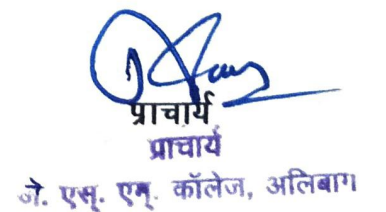 प्राचार्य
प्राचार्य
जे. एस्. एम्. कॉलेज, अलिबाग